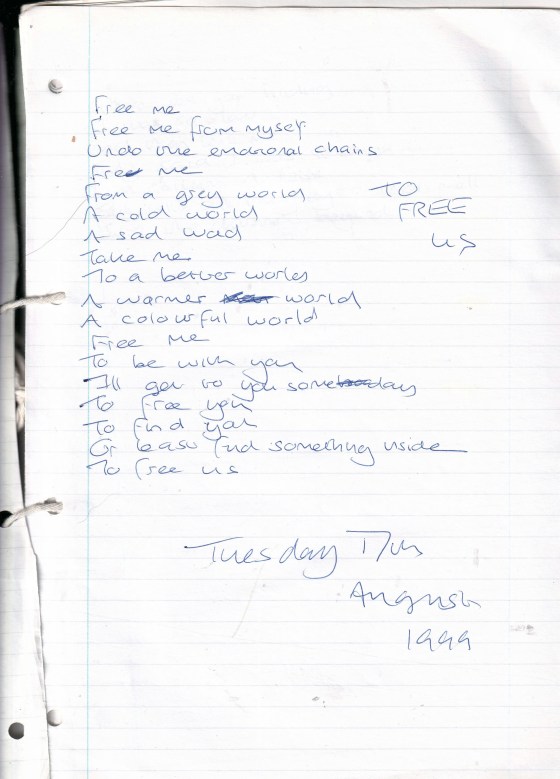 Free me
Free me from myself
Undo the emotional chains
Free me
From a grey world
A cold world
A sad world
Take me
To a better world
A warmer world
A colourful world
Free me
To be with you
I'll get to you someday
To free you
To find you
Or least find something inside
To free us
TO
FREE
US
Tuesday 17th
August
1999